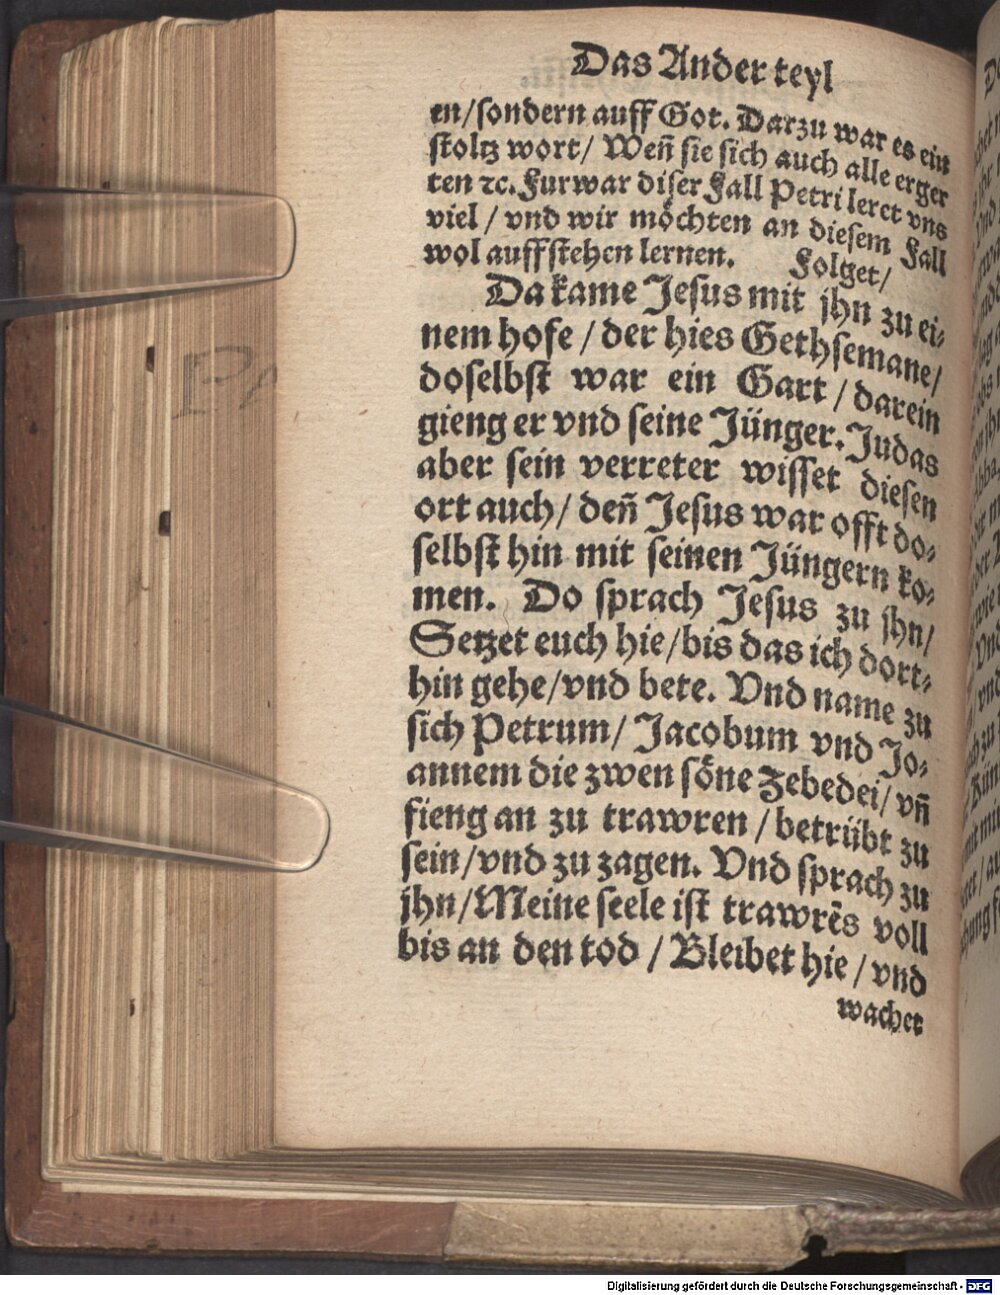 Das Ander teyl
en/sondern auff Got. Darzu war es ein
stoltz wort/ Weñ sie sich auch alle erger
ten ꝛc. Furwar diser Fall Petri leret vns
viel / vnd wir möchten an diesem Fall
wol auffstehen lernen. Folget/
Da kame Jesus mit jhn zu ei-
nem hofe / der hies Gethsemane/
doselbst war ein Gart / darein
gieng er vnd seine Jünger. Judas
aber sein verreter wisset diesen
ort auch/ deñ Jesus war offt do-
selbst hin mit seinen Jüngern ko-
men. Do sprach Jesus zu jhn/
Setzet euch hie/bis das ich dort-
hin gehe/vnd bete. Vnd name zu
sich Petrum/ Jacobum vnd Jo-
annem die zwen söne Zebedei/ vñ
fieng an zu trawren / betrübt zu
sein/vnd zu zagen. Vnd sprach zu
jhn/Meine seele ist trawrēs voll
bis an den tod / Bleibet hie / vnd
wachet
Digitalisierung gefördert durch die Deutsche Forschungsgemeinschaft - DFG